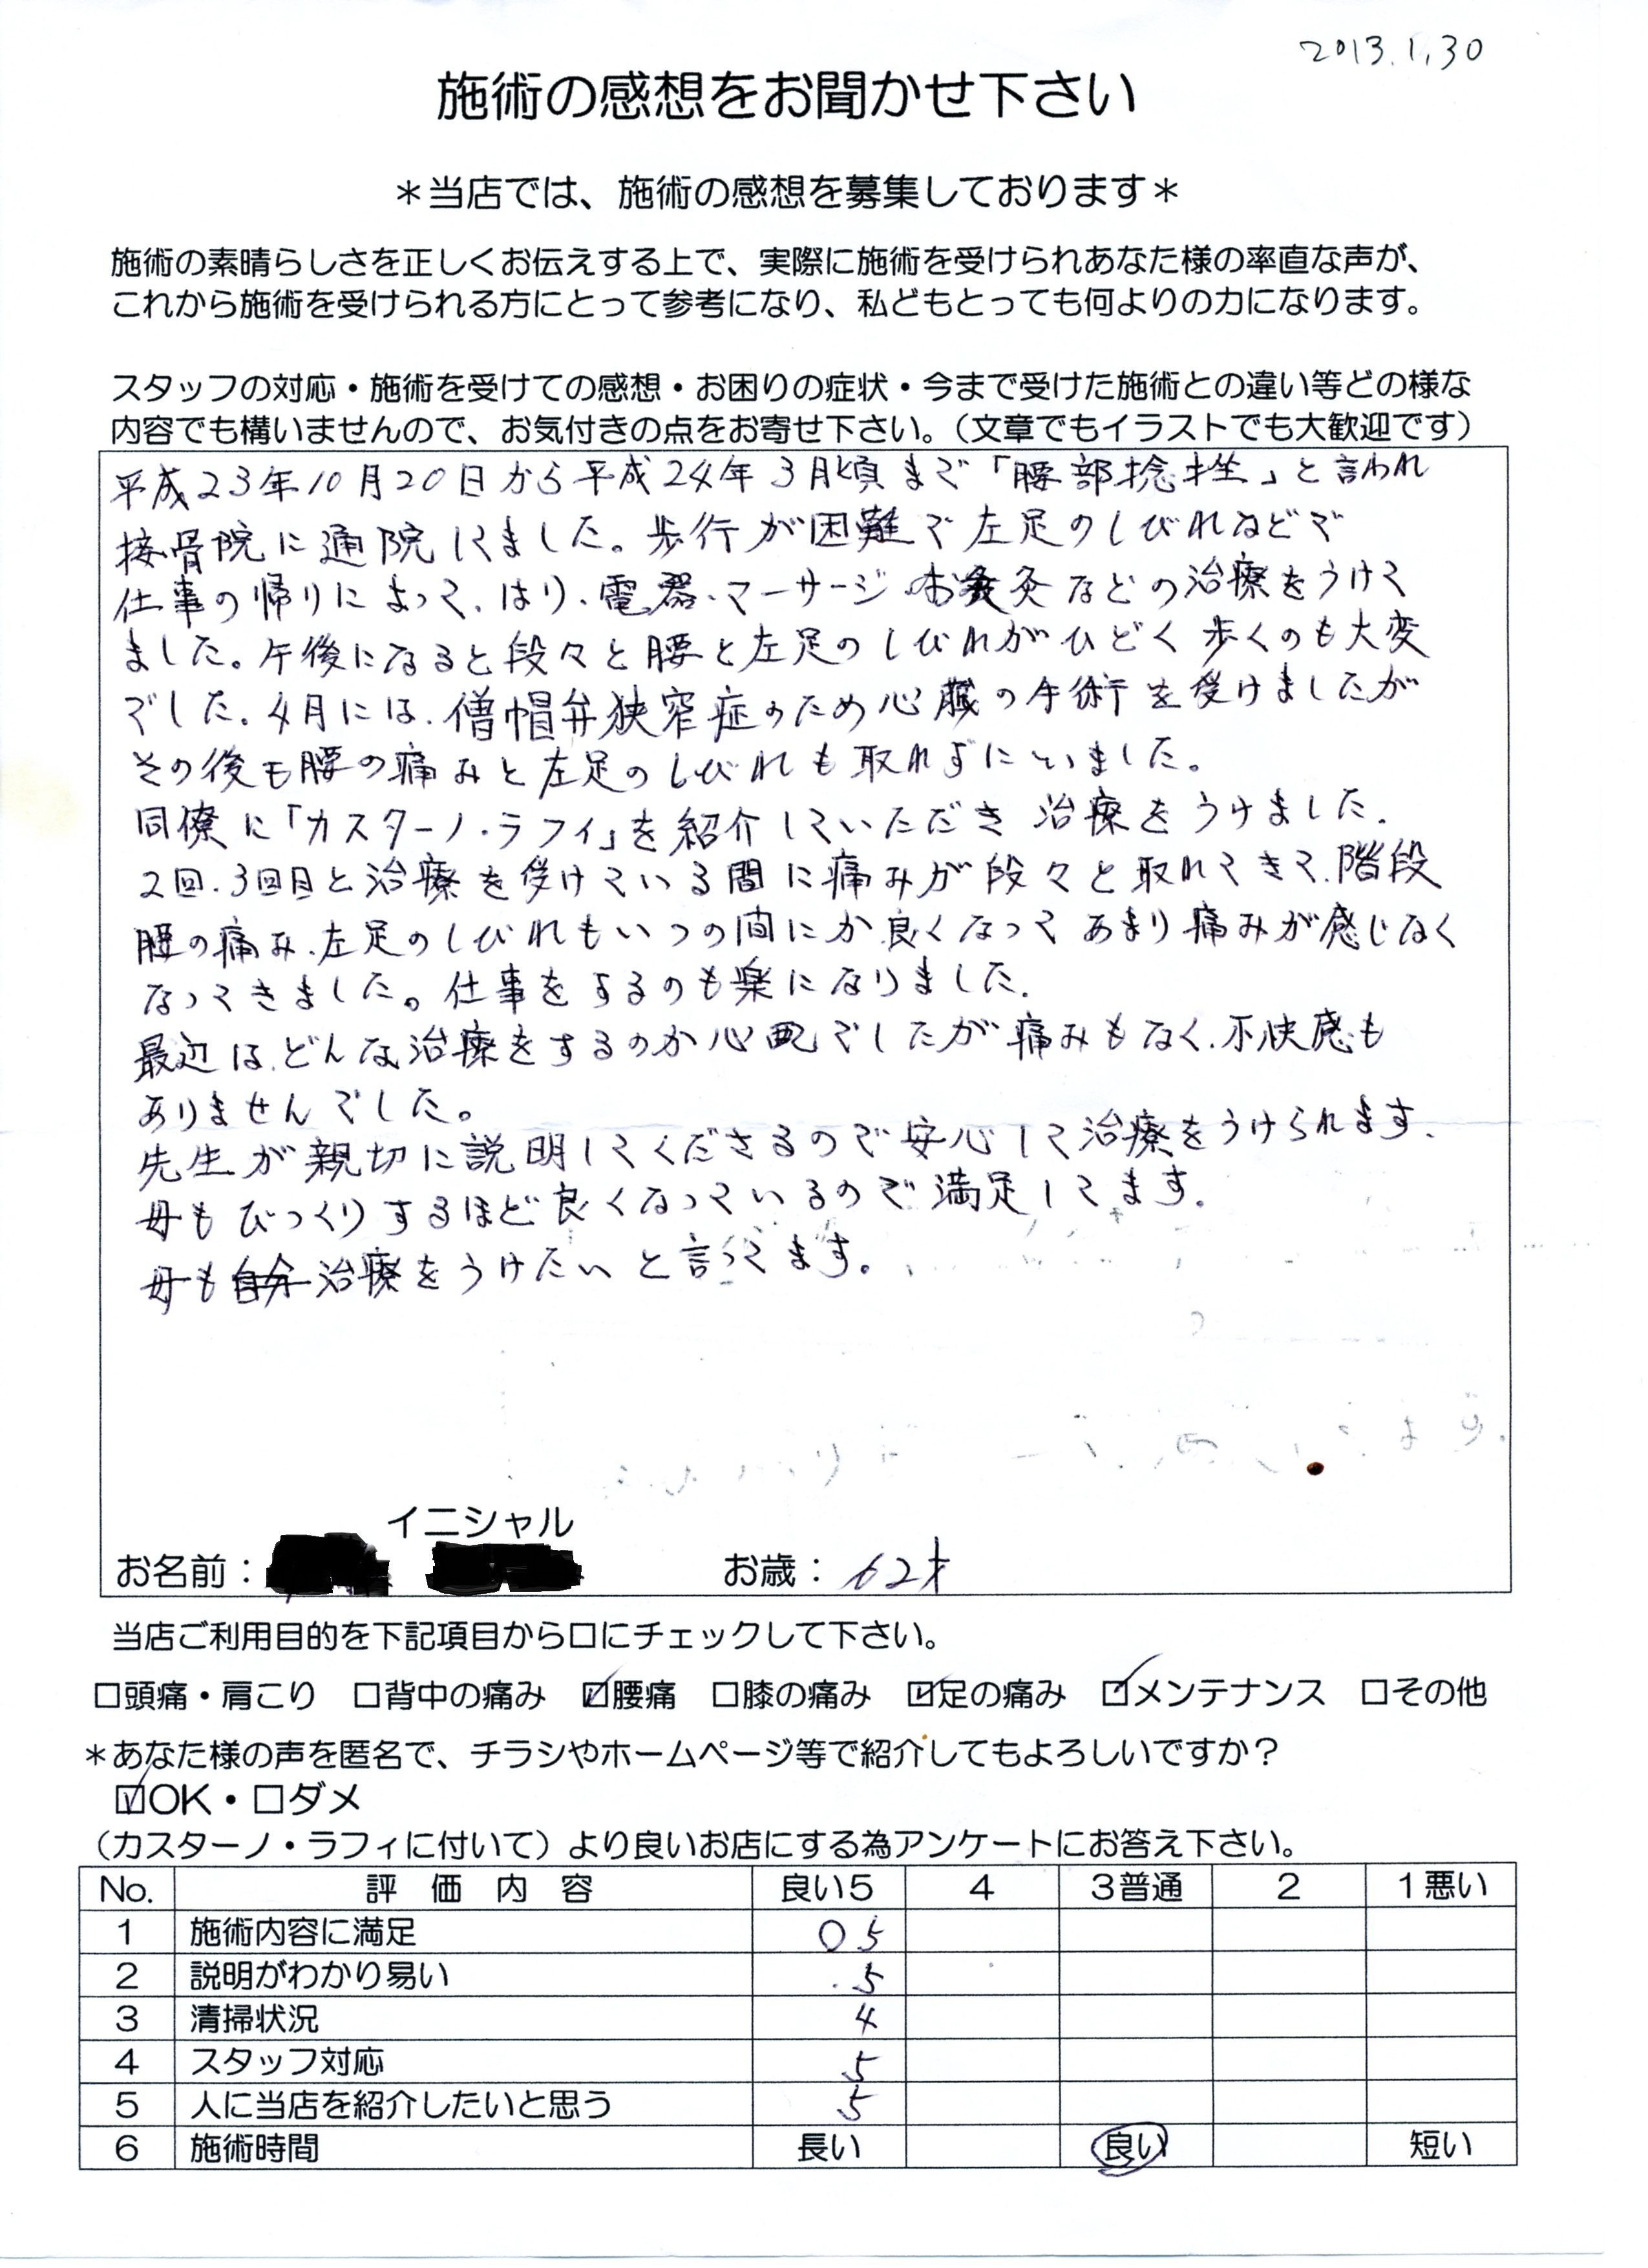 2013.1.30
施術の感想をお聞かせ下さい
＊当店では、施術の感想を募集しております＊
施術の素晴らしさを正しくお伝えする上で、実際に施術を受けられあなた様の率直な声が、
これから施術を受けられる方にとって参考になり、私どもとっても何よりの力になります。
スタッフの対応・施術を受けての感想・お困りの症状・今まで受けた施術との違い等どの様な
内容でも構いませんので、お気付きの点をお寄せ下さい。（文章でもイラストでも大歓迎です）
平成23年10月20日から平成24年3月頃まで「腰部捻挫」と言われ
接骨院に通院してました。歩行が困難で左足のしびれなどで
仕事の帰りによって、はり、電器、マーサージ、お灸などの治療をうけて
ました。午後になると段々と腰と左足のしびれがひどく歩くのも大変
でした。4月には、僧帽弁狭窄症のため心臓の手術を受けましたが
その後も腰の痛みと左足のしびれも取れずにいました。
同僚に「カスターノ・ラフィ」を紹介していただき治療をうけました。
2回、3回目と治療を受けている間に痛みが段々と取れてきて、階段
腰の痛み、左足のしびれもいつの間にか良くなってあまり痛みが感じなく
なってきました。仕事をするのも楽になりました。
最近は、どんな治療をするのか心配でしたが痛みもなく、不快感も
ありませんでした。
先生が親切に説明してくださるので安心して治療をうけられます。
母もびっくりするほど良くなっているので満足してます。
母も自分治療をうけたいと言ってます。
イニシャル
お名前： お歳：62才
当店ご利用目的を下記項目から口にチェックして下さい。
☐頭痛・肩こり ☐背中の痛み ☑腰痛 ☐膝の痛み ☑足の痛み ☑メンテナンス ☐その他
＊あなた様の声を匿名で、チラシやホームページ等で紹介してもよろしいですか？
☑OK・☐ダメ
（カスターノ・ラフィに付いて）より良いお店にする為アンケートにお答え下さい。
No. 評価内容 良い5 4 3普通 2 1悪い
1 施術内容に満足 ○5
2 説明がわかり易い 5
3 清掃状況 4
4 スタッフ対応 5
5 人に当店を紹介したいと思う 5
6 施術時間 長い 良い 短い